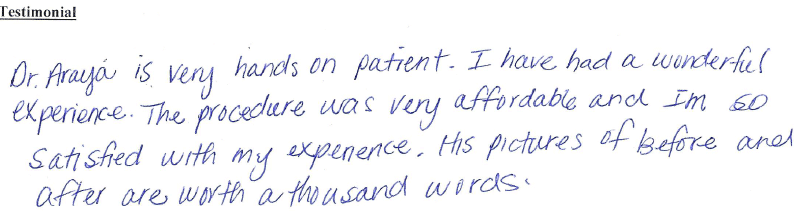 Testimonial
Dr. Araya is very hands on patient. I have had a wonderful
experience. The procedure was very affordable and Im so
satisfied with my experience. His pictures of before and
after are worth a thousand words.